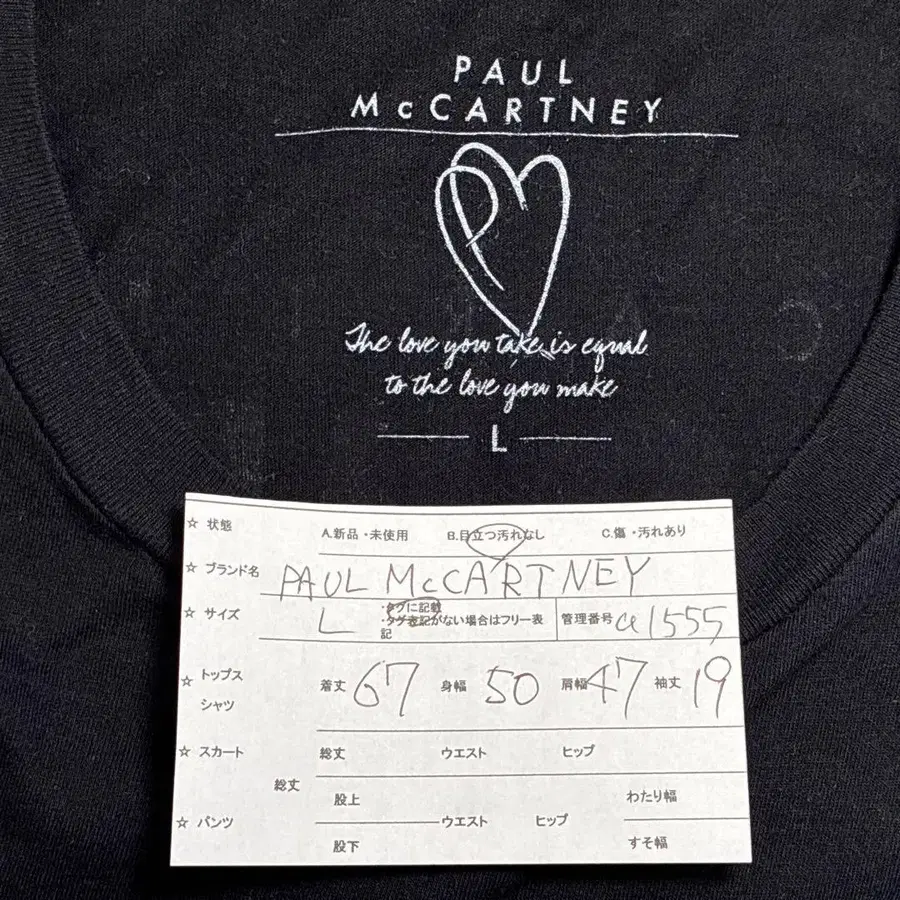 PAUL
McCARTNEY
The love you take is equal
to the love you make
L
☆ 状態 A.新品・未使用 B.目立つ汚れなし C.傷・汚れあり
☆ ブランド名 PAUL McCARTNEY
☆ サイズ L ・タグに記載
・タグ表記がない場合はフリー表
記
管理番号 a1555
☆ トップス
シャツ
着丈 67 身幅 50 肩幅 47 袖丈 19
☆ スカート 総丈 ウエスト ヒップ
総丈
股上 わたり幅
☆ パンツ ウエスト ヒップ
股下 すそ幅